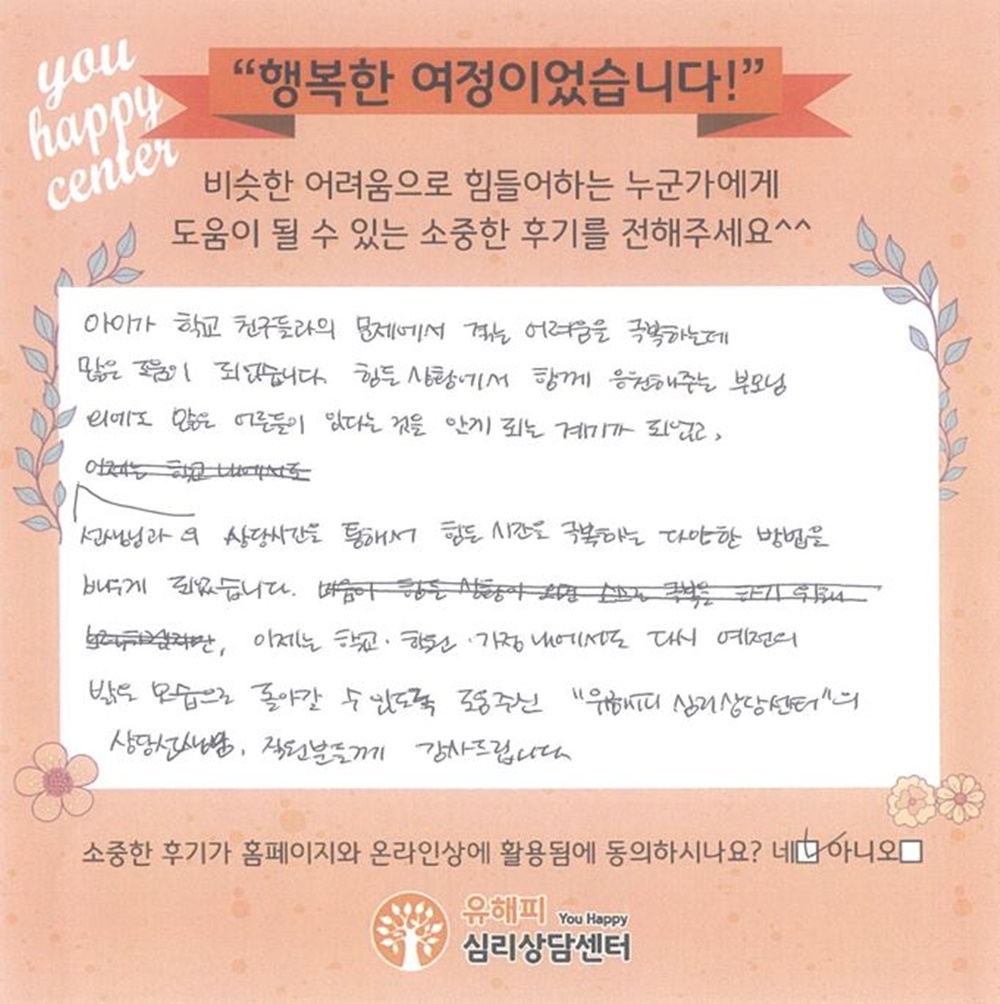 you
happy
center
“행복한 여정이었습니다!”
비슷한 어려움으로 힘들어하는 누군가에게
도움이 될 수 있는 소중한 후기를 전해주세요^^
아이가 학교 친구들과의 문제에서 겪는 어려움을 극복하는데
많은 도움이 되었습니다. 힘든 상황에서 함께 응원해주는 부모님
외에도 많은 어른들이 있다는 것을 안게 되는 계기가 되었고,
이제는 학교 내에서도
선생님과의 상담시간을 통해서 힘든 시간을 극복하는 다양한 방법을
배우게 되었습니다. 마음이 힘든 상황이 극복을 하기 위해
, 이제는 학교·학원·가정 내에서도 다시 예전의
밝은 모습으로 돌아갈 수 있도록 도움주신 "유해피 심리상담센터"의
상담선생님, 직원분들께 감사드립니다
소중한 후기가 홈페이지와 온라인상에 활용됨에 동의하시나요? 네 아니오
유해피 You Happy
심리상담센터